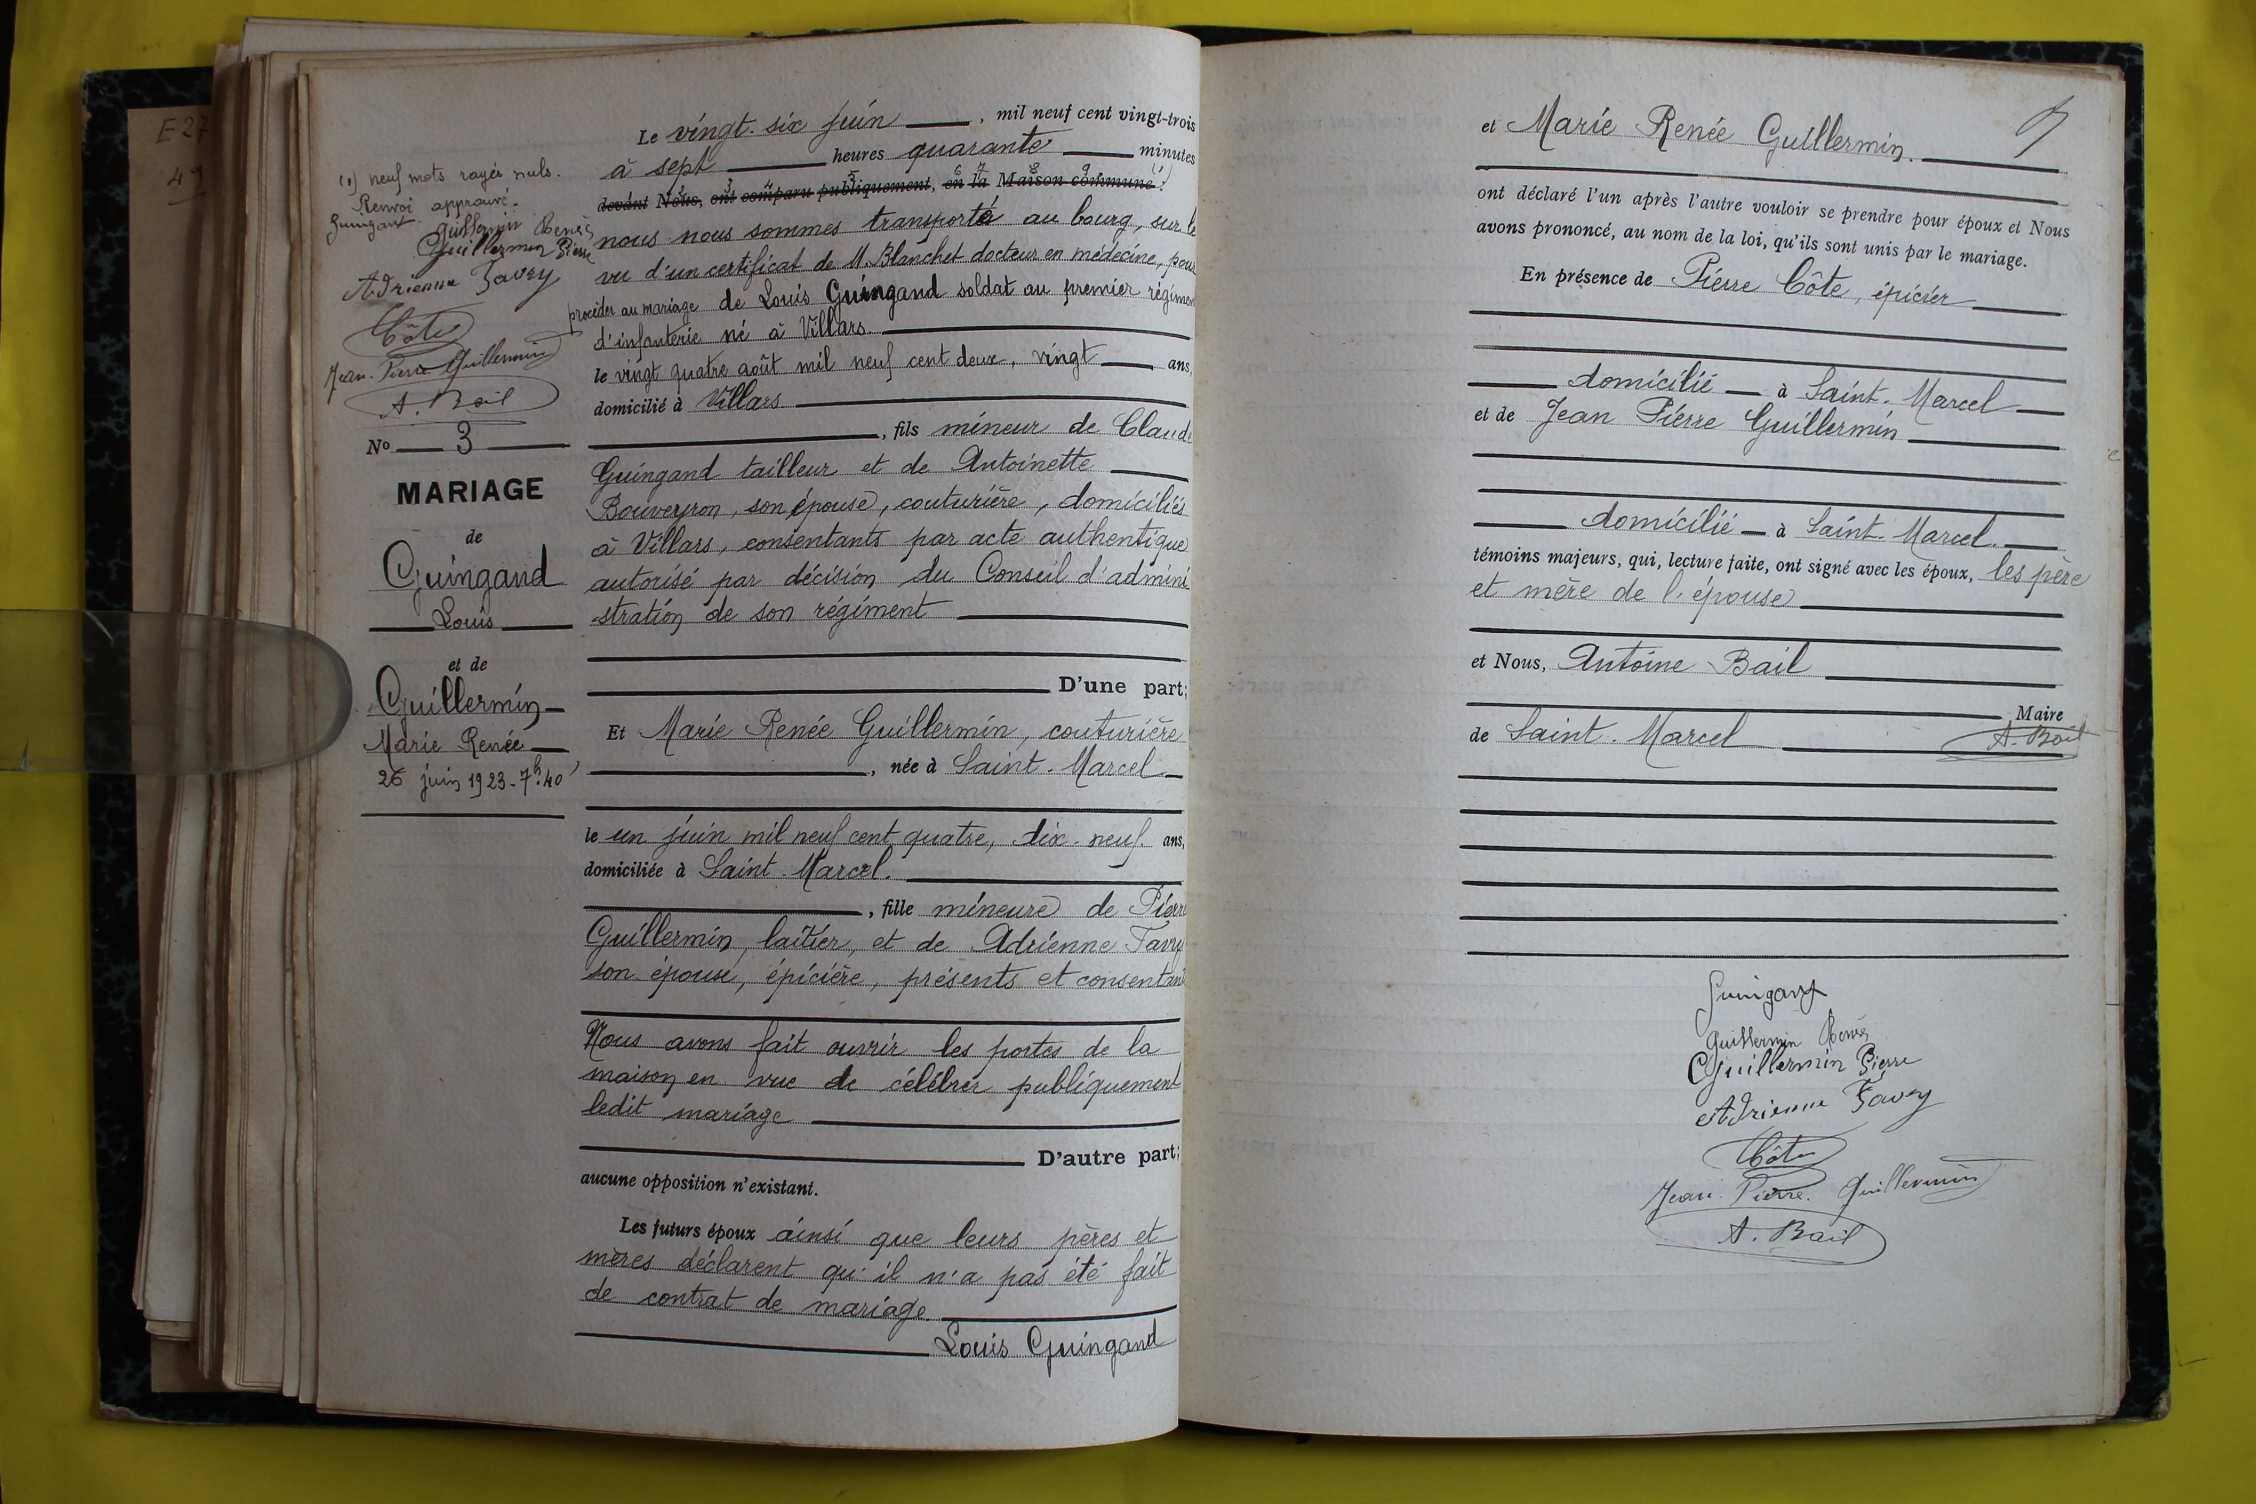 E 27
49
(1) neuf mots rayés nuls.
Renvoi approuvé.
Guingand
Guillermin Renée
Guillermin Pierre
Adrienne Favey
Côte
Jean-Pierre Guillermin
A. Bail
No 3
MARIAGE
de
Guingand
Louis
et de
Guillermin
Marie Renée
26 juin 1923 - 7h 40'
Le vingt-six juin, mil neuf cent vingt-trois
à sept heures quarante minutes
devant Nous, ont comparu publiquement, en la Maison commune (1)
1 2 3 4 5 6 7 8 9
nous nous sommes transporté au bourg, sur le
vu d'un certificat de M. Blanchet docteur en médecine, pour
procéder au mariage de Louis Guingand soldat au premier régimen
d'infanterie né à Villars.
le vingt quatre août mil neuf cent deux, vingt ans,
domicilié à Villars
, fils mineur de Claude
Guingand tailleur et de Antoinette
Bouveyron, son épouse, couturière, domiciliés
à Villars, consentants par acte authentique
autorisé par décision du Conseil d'admini
stration de son régiment
D'une part;
Et Marie Renée Guillermin, couturière
, née à Saint-Marcel
le un juin mil neuf cent quatre, dix-neuf ans,
domiciliée à Saint-Marcel.
, fille mineure de Pierre
Guillermin, laitier, et de Adrienne Favey
son épouse, épicière, présents et consentant
Nous avons fait ouvrir les portes de la
maison en vue de célébrer publiquement
ledit mariage
D'autre part;
aucune opposition n'existant.
Les futurs époux ainsi que leurs pères et
mères déclarent qu'il n'a pas été fait
de contrat de mariage.
Louis Guingand
et Marie Renée Guillermin.
ont déclaré l'un après l'autre vouloir se prendre pour époux et Nous
avons prononcé, au nom de la loi, qu'ils sont unis par le mariage.
En présence de Pierre Côte, épicier
domicilié à Saint-Marcel
et de Jean Pierre Guillermin
domicilié à Saint-Marcel.
témoins majeurs, qui, lecture faite, ont signé avec les époux, les père
et mère de l'épouse
et Nous, Antoine Bail
Maire
de Saint-Marcel
A. Bail
Guingand
Guillermin Renée
Guillermin Pierre
Adrienne Favey
Côte
Jean-Pierre Guillermin
A. Bail